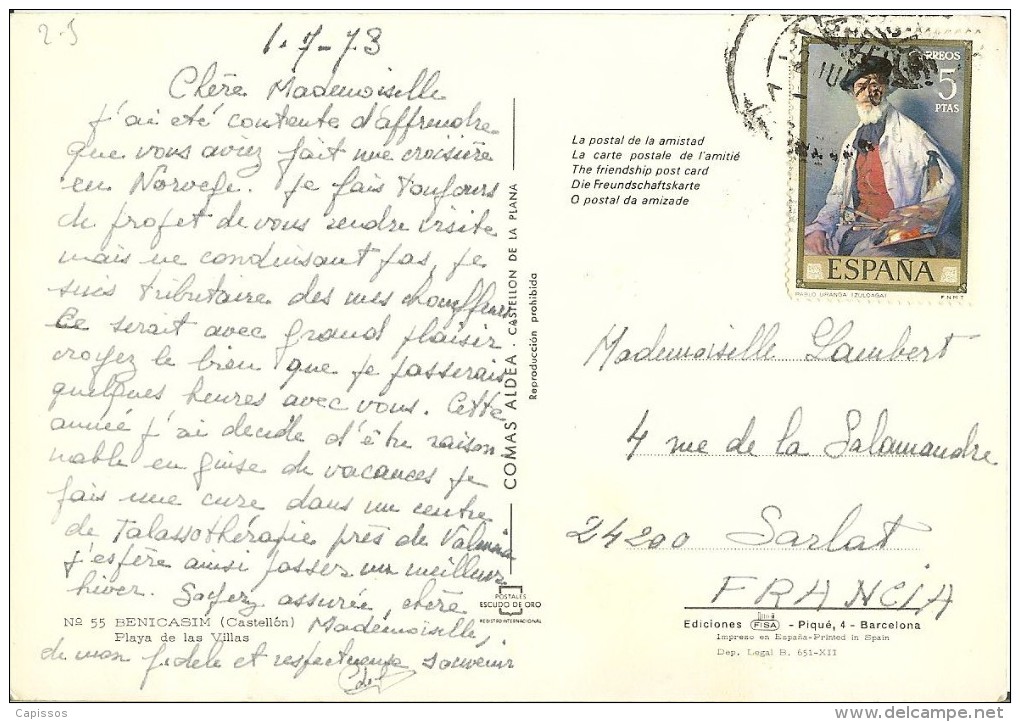 2-5
1-7-73
Chère Mademoiselle
j'ai eté contente d'affrendre
que vous aviez fait une croisière
en Norvege. Je fais toujours
de projet de vous rendre visite
mais ne conduisant pas, je
suis tributaire des mes chauffeurs
Ce serait avec grand plaisir
croyez le bien que je passerais
quelques heures avec vous. Cette
année j'ai decidé d'être raison
nable en guise de vacances je
fais une cure dans un centre
de Talassothérapie près de Valencia
j'espère ainsi passer un meilleur
hiver. Soyez assurée, chère
Mademoiselle,
de mon fidele et respectueux souvenir
Nº 55 BENICASIM (Castellón)
Playa de las Villas
COMAS ALDEA - CASTELLON DE LA PLANA
Reproducción prohibida
POSTALES
ESCUDO DE ORO
REGISTRO INTERNACIONAL
La postal de la amistad
La carte postale de l'amitié
The friendship post card
Die Freundschaftskarte
O postal da amizade
CORREOS
5
PTAS
ESPAÑA
PABLO URANGA (ZULOAGA)
F.N.M.T.
Mademoiselle Lambert
4 rue de la Salamandre
24200 Sarlat
FRANCIA
Ediciones FISA - Piqué, 4 - Barcelona
Impreso en España-Printed in Spain
Dep. Legal B. 651-XII
Capissos
http://www.delcampe.net